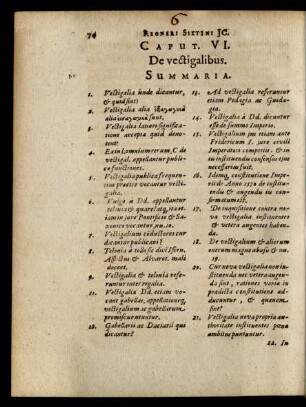 6
74 REGNERI SIXTINI JC.
CAPUT. VI.
De vectigalibus.
SUMMARIA.
1. Vectigalia unde dicantur,
& quid sint?
2. Vectigalia alia
alia sunt.
3. Vectigalia latiori significa-
tione accepta quid deno-
tent?
4. Ex in l. omnium rerum, C. de
vectigal. appellantur publi-
cæ functiones.
5. Vectigalia publica frequen-
tius precise vocantur vecti-
galia.
6. Vulgò à Dd. appellantur
telonia & quare? atque, ita et-
iam in jure Pontificio & Sa-
xonico vocantur, nu. 10.
7. Vectigalium conductores cur
dicantur publicani?
8. Telonia à tollo sic dici Iserv.
Afflictus & Alvarot. malè
docent.
9. Vectigalia & telonia refe-
runtur inter regalia.
11. Vectigalia Dd. etiam vo-
cant gabellas, appellationeque,
vectigalium ac gabellarum
promiscuè utuntur.
12. Gabellarii ac Daciarii qui
dicantur?
13. Ad vectigalia referuntur
etiam Pedagia ac Guida-
gia.
14. Vectigalia à Dd. dicuntur
esse de summo Imperio.
15. Vectigalium jus etiam ante
Fridericum I. jure civili
Imperatori competiit, & in
iis instituendis consensus ejus
necessarius fuit.
16. Idemque, constitutione Imperii
de Anno 1576 de instituen-
dis & augendis iis con-
firmatum est.
17. De inquisitione contra no-
va vectigalia instituentes
& vetera augentes haben-
da.
18. De vectigalium & aliarum
earum magno abusu, nu. 19.
&
20. Cur nova vectigalia non in-
stituenda nec vetera augen-
da sint, rationes variæ in
prædicta constitutione ad-
ducuntur, & quænam
sint?
21. Vectigalia nova propria au-
thoritate instituentes pœnâ
ambitus puniuntur.
22. In